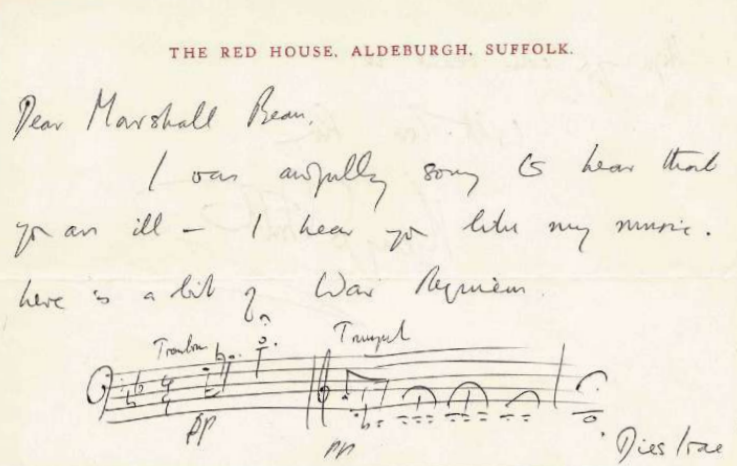 THE RED HOUSE, ALDEBURGH, SUFFOLK.
Dear Marshall Bean,
I was awfully sorry to hear that
you are ill – I hear you like my music.
here is a bit of War Requiem.
Trombone Trumpet
pp pp
Dies Irae